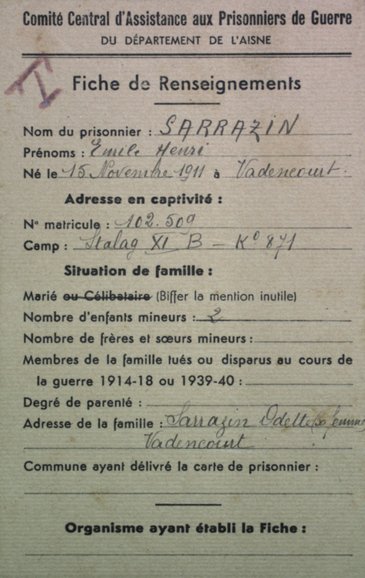 Comité Central d'Assistance aux Prisonniers de Guerre
DU DÉPARTEMENT DE L'AISNE
I
Fiche de Renseignements
Nom du prisonnier : SARRAZIN
Prénoms : Emile Henri
Né le 15 Novembre 1911 à Vadencourt.
Adresse en captivité :
N° matricule : 102.509
Camp : Stalag XI B - K° 871
Situation de famille :
Marié ou Célibataire (Biffer la mention inutile)
Nombre d'enfants mineurs : 2
Nombre de frères et sœurs mineurs :
Membres de la famille tués ou disparus au cours de
la guerre 1914-18 ou 1939-40 :
Degré de parenté :
Adresse de la famille : Sarrazin Odette sa femme
Vadencourt
Commune ayant délivré la carte de prisonnier :
Organisme ayant établi la Fiche :